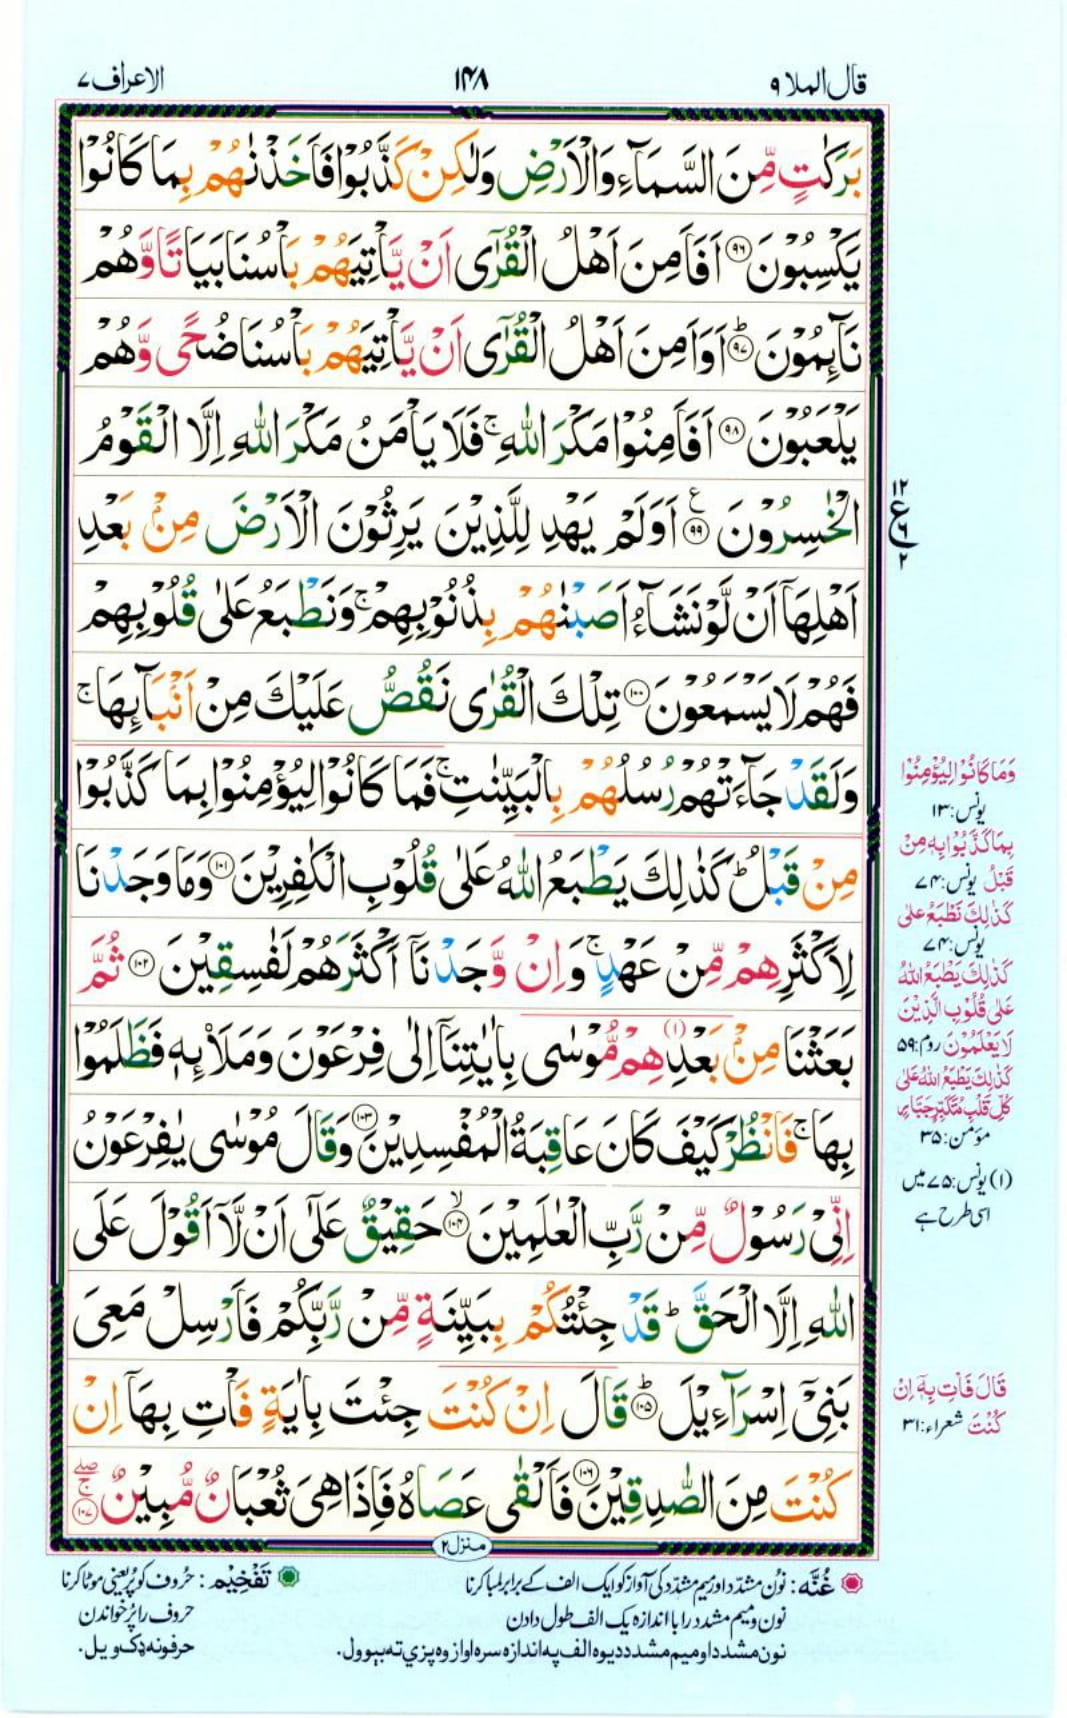 قال الملا ۹
۱۴۸
الاعراف ۷
بَرَكٰتٍ مِّنَ السَّمَآءِ وَالْاَرْضِ وَلٰكِنْ كَذَّبُوْا فَاَخَذْنٰهُمْ بِمَا كَانُوْا
يَكْسِبُوْنَ ۹۶ اَفَاَمِنَ اَهْلُ الْقُرٰٓى اَنْ يَّاْتِيَهُمْ بَاْسُنَا بَيَاتًا وَّهُمْ
نَآئِمُوْنَ ؕ۹۷ اَوَاَمِنَ اَهْلُ الْقُرٰٓى اَنْ يَّاْتِيَهُمْ بَاْسُنَا ضُحًى وَّهُمْ
يَلْعَبُوْنَ ۹۸ اَفَاَمِنُوْا مَكْرَ اللّٰهِ ۚ فَلَا يَاْمَنُ مَكْرَ اللّٰهِ اِلَّا الْقَوْمُ
الْخٰسِرُوْنَ ۹۹ ع اَوَلَمْ يَهْدِ لِلَّذِيْنَ يَرِثُوْنَ الْاَرْضَ مِنْۢ بَعْدِ
اَهْلِهَاۤ اَنْ لَّوْ نَشَآءُ اَصَبْنٰهُمْ بِذُنُوْبِهِمْ ۚ وَنَطْبَعُ عَلٰى قُلُوْبِهِمْ
فَهُمْ لَا يَسْمَعُوْنَ ۱۰۰ تِلْكَ الْقُرٰى نَقُصُّ عَلَيْكَ مِنْ اَنْۢبَآئِهَا ۚ
وَلَقَدْ جَآءَتْهُمْ رُسُلُهُمْ بِالْبَيِّنٰتِ ۚ فَمَا كَانُوْا لِيُؤْمِنُوْا بِمَا كَذَّبُوْا
مِنْ قَبْلُ ؕ كَذٰلِكَ يَطْبَعُ اللّٰهُ عَلٰى قُلُوْبِ الْكٰفِرِيْنَ ۱۰۱ وَمَا وَجَدْنَا
لِاَكْثَرِهِمْ مِّنْ عَهْدٍ ۚ وَاِنْ وَّجَدْنَاۤ اَكْثَرَهُمْ لَفٰسِقِيْنَ ۱۰۲ ثُمَّ
بَعَثْنَا مِنْۢ بَعْدِهِمْ (۱) مُّوْسٰى بِاٰيٰتِنَاۤ اِلٰى فِرْعَوْنَ وَمَلَا۟ئِهٖ فَظَلَمُوْا
بِهَا ۚ فَانْظُرْ كَيْفَ كَانَ عَاقِبَةُ الْمُفْسِدِيْنَ ۱۰۳ وَقَالَ مُوْسٰى يٰفِرْعَوْنُ
اِنِّيْ رَسُوْلٌ مِّنْ رَّبِّ الْعٰلَمِيْنَ ۙ۱۰۴ حَقِيْقٌ عَلٰۤى اَنْ لَّاۤ اَقُوْلَ عَلَى
اللّٰهِ اِلَّا الْحَقَّ ؕ قَدْ جِئْتُكُمْ بِبَيِّنَةٍ مِّنْ رَّبِّكُمْ فَاَرْسِلْ مَعِيَ
بَنِيْۤ اِسْرَآءِيْلَ ؕ۱۰۵ قَالَ اِنْ كُنْتَ جِئْتَ بِاٰيَةٍ فَاْتِ بِهَاۤ اِنْ
كُنْتَ مِنَ الصّٰدِقِيْنَ ۱۰۶ فَاَلْقٰى عَصَاهُ فَاِذَا هِيَ ثُعْبَانٌ مُّبِيْنٌ ۚۖ۱۰۷
منزل ۲
۱۲
ع ۶
۲
وَمَا كَانُوْا لِيُؤْمِنُوْا
یونس: ۱۳
بِمَا كَذَّبُوْا بِهٖ مِنْ
قَبْلُ یونس: ۷۴
كَذٰلِكَ نَطْبَعُ عَلٰى
یونس: ۷۴
كَذٰلِكَ يَطْبَعُ اللّٰهُ
عَلٰى قُلُوْبِ الَّذِيْنَ
لَا يَعْلَمُوْنَ روم: ۵۹
كَذٰلِكَ يَطْبَعُ اللّٰهُ عَلٰى
كُلِّ قَلْبِ مُتَكَبِّرٍ جَبَّارٍ
مؤمن: ۳۵
(۱) یونس: ۷۵ میں
اسی طرح ہے
قَالَ فَاْتِ بِهٖۤ اِنْ
كُنْتَ شعراء: ۳۱
غُنَّه: نون مشدّد اور میم مشدّد کی آواز کو ایک الف کے برابر لمبا کرنا
نون و میم مشدد را با اندازه یک الف طول دادن
نون مشدد او میم مشدد د یوه الف په اندازه سره اواز وه پزي ته بېوول.
تَفْخِيْم: حُروف کو پُر یعنی موٹا کرنا
حروف را پُر خواندن
حرفونه ډک ویل.